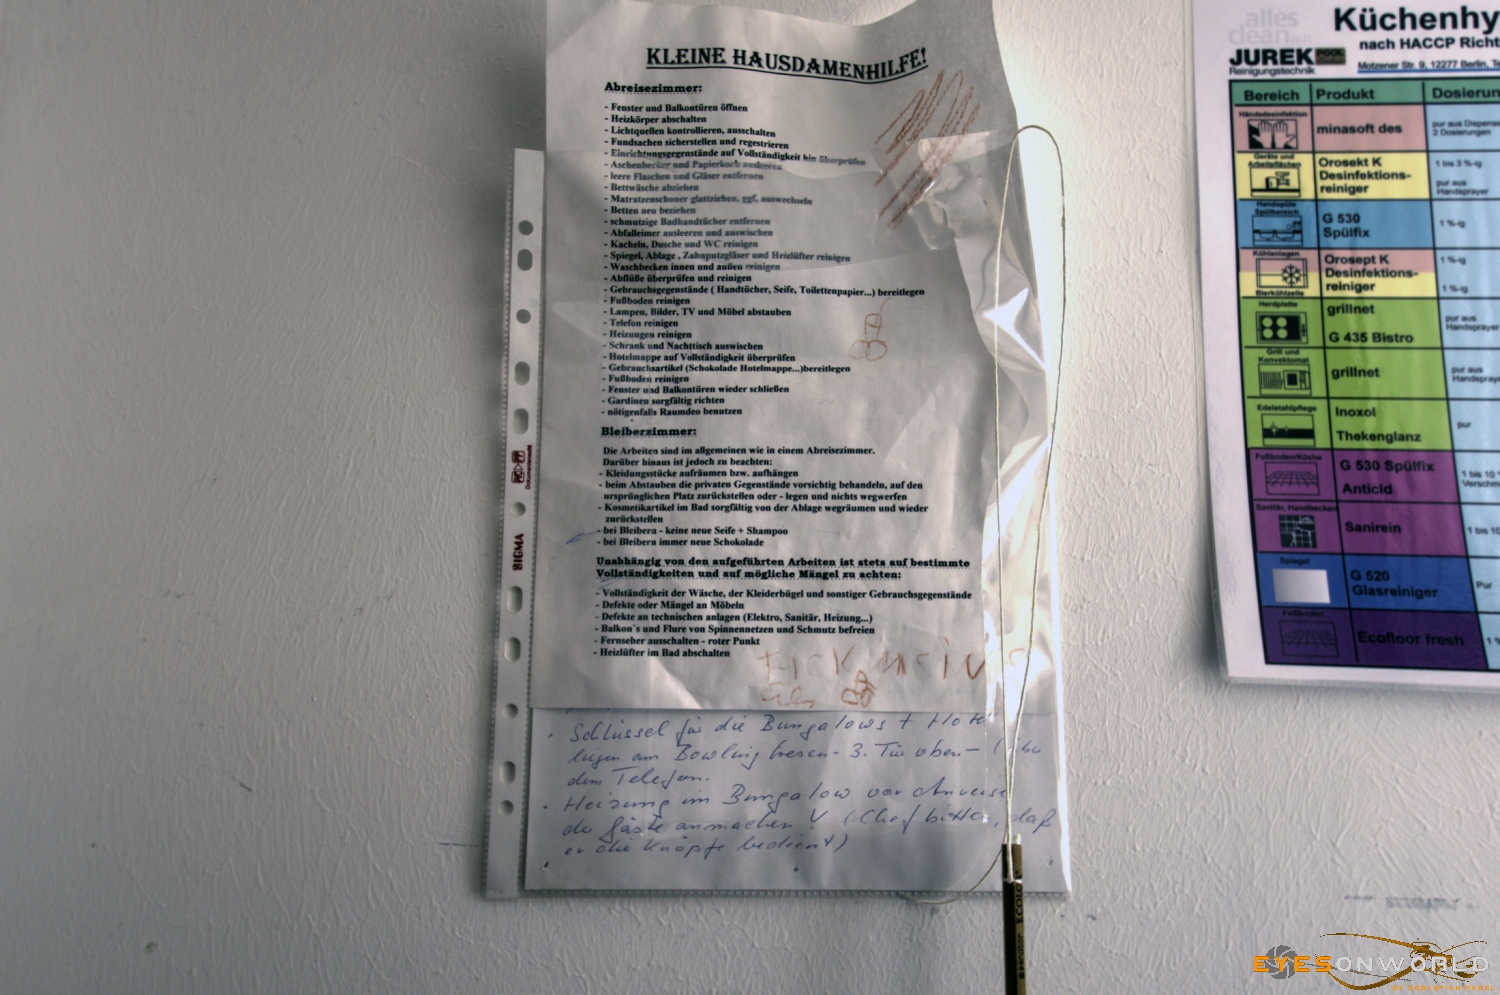 KLEINE HAUSDAMENHILFE!
Abreisezimmer:
- Fenster und Balkontüren öffnen
- Heizkörper abschalten
- Lichtquellen kontrollieren, ausschalten
- Fundsachen sicherstellen und regestrieren
- Einrichtungsgegenstände auf Vollständigkeit hin überprüfen
- Aschenbecher und Papierkorb ausleeren
- leere Flaschen und Gläser entfernen
- Bettwäsche abziehen
- Matratzenschoner glattziehen, ggf. auswechseln
- Betten neu beziehen
- schmutzige Badhandtücher entfernen
- Abfalleimer ausleeren und auswischen
- Kacheln, Dusche und WC reinigen
- Spiegel, Ablage , Zahnputzgläser und Heizlüfter reinigen
- Waschbecken innen und außen reinigen
- Abflüße überprüfen und reinigen
- Gebrauchsgegenstände ( Handtücher, Seife, Toilettenpapier...) bereitlegen
- Fußboden reinigen
- Lampen, Bilder, TV und Möbel abstauben
- Telefon reinigen
- Heizungen reinigen
- Schrank und Nachttisch auswischen
- Hotelmappe auf Vollständigkeit überprüfen
- Gebrauchsartikel (Schokolade Hotelmappe...)bereitlegen
- Fußboden reinigen
- Fenster und Balkontüren wieder schließen
- Gardinen sorgfältig richten
- nötigenfalls Raumdeo benutzen
Bleiberzimmer:
Die Arbeiten sind im allgemeinen wie in einem Abreisezimmer.
Darüber hinaus ist jedoch zu beachten:
- Kleidungsstücke aufräumen bzw. aufhängen
- beim Abstauben die privaten Gegenstände vorsichtig behandeln, auf den
ursprünglichen Platz zurückstellen oder - legen und nichts wegwerfen
- Kosmetikartikel im Bad sorgfältig von der Ablage wegräumen und wieder
zurückstellen
- bei Bleibern - keine neue Seife + Shampoo
- bei Bleibern immer neue Schokolade
Unabhängig von den aufgeführten Arbeiten ist stets auf bestimmte
Vollständigkeiten und auf mögliche Mängel zu achten:
- Vollständigkeit der Wäsche, der Kleiderbügel und sonstiger Gebrauchsgegenstände
- Defekte oder Mängel an Möbeln
- Defekte an technischen anlagen (Elektro, Sanitär, Heizung...)
- Balkon's und Flure von Spinnennetzen und Schmutz befreien
- Fernseher ausschalten - roter Punkt
- Heizlüfter im Bad abschalten
· Schlüssel für die Bungalows + Hotel
liegen am Bowlingtresen - 3. Tür oben -
dem Telefon.
· Heizung im Bungalow vor Anreise
der Gäste anmachen! (Chef bitten, daß
er die Knöpfe bedient)
SIGMA
alles
clean mit
JUREK POOL
Reinigungstechnik
Küchenhy
nach HACCP Richt
Motzener Str. 9, 12277 Berlin, Te
Bereich Produkt Dosierun
Händedesinfektion
minasoft des
pur aus Dispense
2 Dosierungen
Geräte und
Arbeitsflächen
Orosekt K
Desinfektions-
reiniger
1 bis 3 %-ig
pur aus
Handsprayer
Handspüle
Spülbereich
G 530
Spülfix
1 %-ig
Kühlanlagen
Bierkühlzelle
Orosept K
Desinfektions-
reiniger
1 %-ig
1 %-ig
Herdplatte
grillnet
G 435 Bistro
pur aus
Handsprayer
Grill und
Konvektomat
grillnet
pur aus
Handspraye
Edelstahlpflege
Inoxol
Thekenglanz
pur
Fußboden/Küche
G 530 Spülfix
Anticid
1 bis 10
Verschm
Sanitär, Handbecken
Sanirein
1 bis 10
Spiegel
G 520
Glasreiniger
Pur
Fußboden
Ecofloor fresh
1 %
EYESONWORLD
BY SEBASTIAN NAGEL